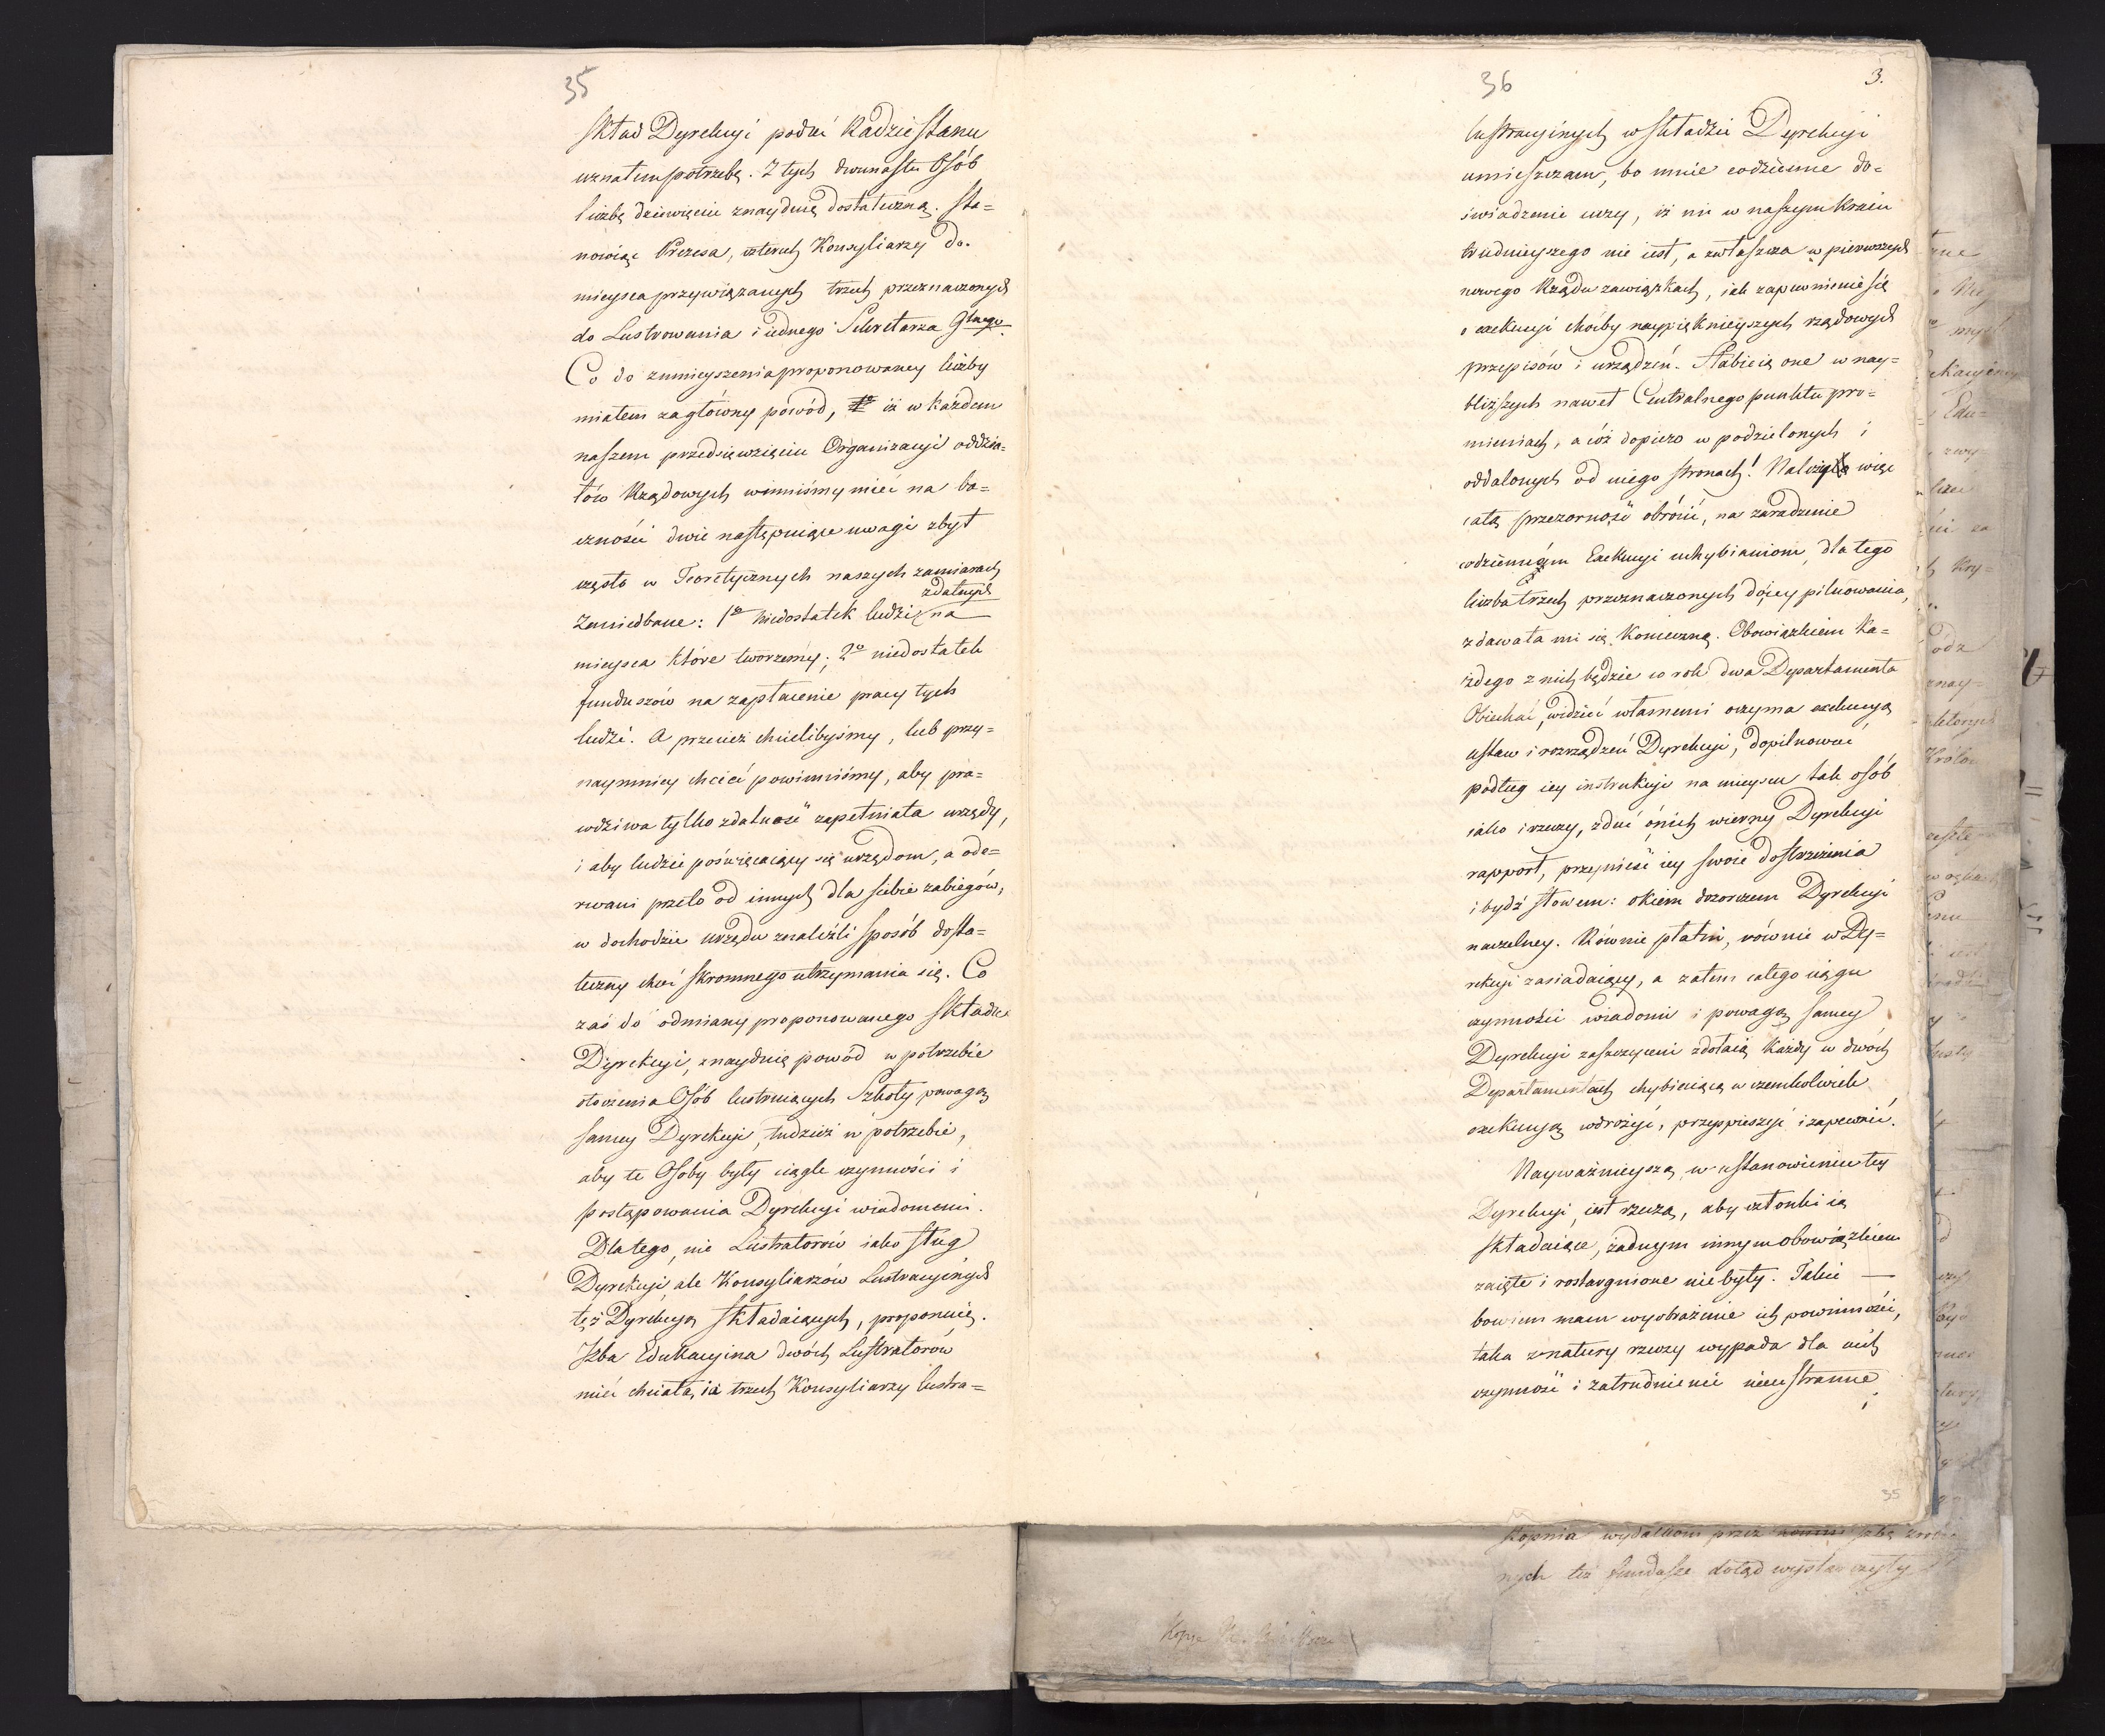 35
skład Dyrekcyi podać Radzie Stanu
uznałem potrzebę. Z tych dwunastu Osób
liczbę dziewięciu znayduię dostateczną. Sta=
nowiąc Prezesa, czterech Konsyliarzy do
mieysca przywiązanych trzech przeznaczonych
do Lustrowania i iednego Sekretarza Głnego.
Co do zmnieyszenia proponowaney liczby
miałem za główny powód, iż w każdem
naszem przedsięwzięciu Organizacyi oddzia=
łów Rządowych winniśmy mieć na ba=
czności dwie następuiące uwagi zbyt
często w Teoretycznych naszych zamiarach
zdatnych
Zaniedbane: 1o Niedostatek ludzi na
mieysca które tworzemy; 2o niedostatek
funduszów na zapłacenie pracy tych
ludzi. A przecież chcielibyśmy, lub przy=
naymniey chcieć powinniśmy, aby pra=
wdziwa tylko zdatność zapełniała urzędy,
i aby ludzie poświęcaiący się urzędom, a ode=
rwani przeto od innych dla siebie zabiegów,
w dochodzie urzędu znaleźli sposób dosta=
teczny choć skromnego utrzymania się. Co
zaś do odmiany proponowanego składu
Dyrekcyi, znayduię powód w potrzebie
otoczenia Osób lustruiących Szkoły powagą
samey Dyrekcyi, tudzież w potrzebie,
aby te Osoby były ciągle czynności i
postępowania Dyrekcyi wiadomemi.
Dlatego, nie Lustratorów iako sług
Dyrekcyi, ale Konsyliarzów Lustracyinych
też Dyrekcyą składaiących, proponuię.
Izba Edukacyina dwóch Lustratorów
mieć chciała, ia trzech Konsyliarzy lustra=
36
3.
lustracyinych w składzie Dyrekcyi
umieszczam, bo mnie codzienne do=
świadzenie uczy, iż nic w naszym Kraiu
trudnieyszego nie iest, a zwłaszcza w pierwszych
nowego Rządu zawiązkach, iak zapewnienie się
o exekucyi choćby naypięknieyszych rządowych
przepisów i urządzeń. Słabieią one w nay=
bliższych nawet Centralnego punktu pro=
mieniach, a cóż dopiero w podzielonych i
oddalonych od niego stronach! Należy więc
całą przezorność obrócić, na zaradzenie
codziennym Exekucyi uchybianiom, dla tego
liczba trzech przeznaczonych do iey pilnowania,
zdawała mi się Konieczną. Obowiązkiem Ka=
żdego z nich będzie co rok dwa Departamenta
Obiechać, widzieć własnemi oczyma exekucyą
ustaw i rozrządzeń Dyrekcyi, dopilnować
podług iey instrukcyi na mieyscu tak osób
iako i rzeczy, zdać o nich wierny Dyrekcyi
rapport, przynieść iey swoie dostrzeżenia
i bydź słowem: okiem dozorczem Dyrekcyi
naczelney. Równie płatni, równie w Dy=
rekcyi zasiadaiący, a zatem całego ciągu
czynności wiadomi i powagą samey
Dyrekcyi zaszczyceni zdołaią każdy w dwóch
Departamentach chybiaiącą w czemkolwiek
exekucyą wdrożyć, przyspieszyć i zapewnić.
Nayważnieyszą w ustanowieniu tey
Dyrekcyi, iest rzeczą, aby członki ią
składaiące, żadnym innym obowiązkiem
zaięte i roztargnione nie były. Takie —
bowiem mam wyobrażenie ich powinności,
taka z natury rzeczy wypada dla nich
czynność i zatrudnienie nieustanne
i
35
stopnia wydatkom przez Izbę
nych też fundusze dotąd wystarczyły